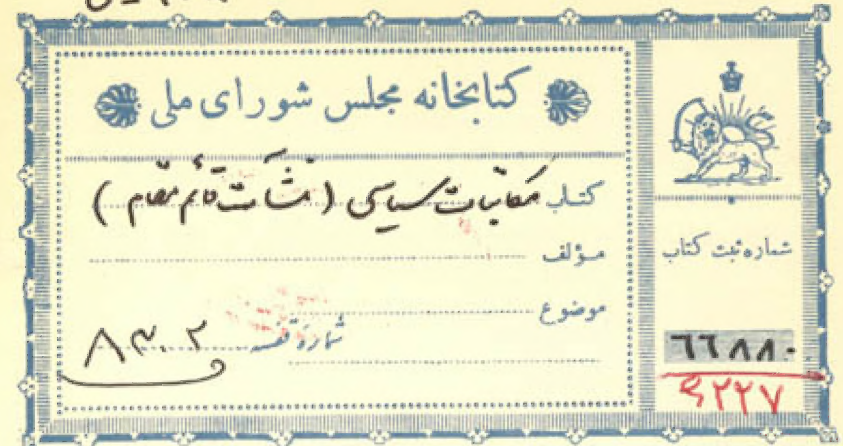 کتابخانه مجلس شورای ملی
کتاب مکاتبات سیاسی (منشآت قائم مقام)
مؤلف
موضوع
شماره قفسه ۸۳۰۲
شماره ثبت کتاب
٦٦٨٨٠
۶۲۲۷